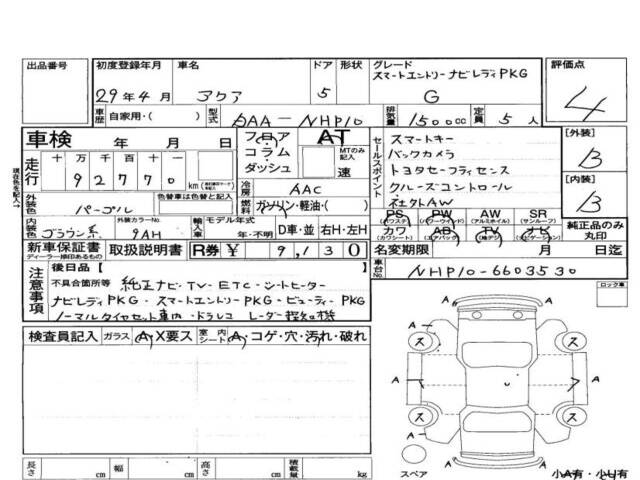 出品番号
初度登録年月 29年4月
車名 アクア
ドア 5
形状
グレード スマートエントリーナビレディPKG
G
評価点 4
車歴 自家用・( )
型式 DAA-NHP10
排気量 1500cc
定員 5人
車検 年 月 日
フロア・コラム・ダッシュ
AT
MTのみ記入
速
セールスポイント
スマートキー
バックカメラ
トヨタセーフティセンス
クルーズコントロール
社外AW
[外装] B
[内装] B
走行 十万千百十一
92770 km
冷房 AAC
現在色を記入→
外装色 パープル
色替車は色替と記入
燃料 ガソリン・軽油・( )
内装色 ブラウン系
外装カラーNo. 9AH
輸入車 モデル年式 年・不明
D車・並 右H・左H
PS (パワステ)
PW (パワーウインド)
AW (アルミホイル)
SR (サンルーフ)
カワ (カワシート)
AB (エアバック)
TV (地デジ)
ナビ (ナビゲーション)
純正品のみ丸印
新車保証書
ディーラー捺印あるもの
取扱説明書
R券 ¥ 9,130
名変期限 月 日迄
車台No. NHP10-6603530
注意事項
後日品 [
不具合箇所等 純正ナビ・TV・ETC・シートヒーター
ナビレディPKG・スマートエントリーPKG・ビューティーPKG
ノーマルタイヤセット車内・ドラレコ レーダー探知機
ロック車
検査員記入 ガラス A・X要ス
室内シート A・コゲ・穴・汚れ・破れ
A
A
ス
ス
A
A
A
ス
ス
A
A
A
スペア
小A有・小U有
長さ cm
幅 cm
高さ cm
積載量 kg